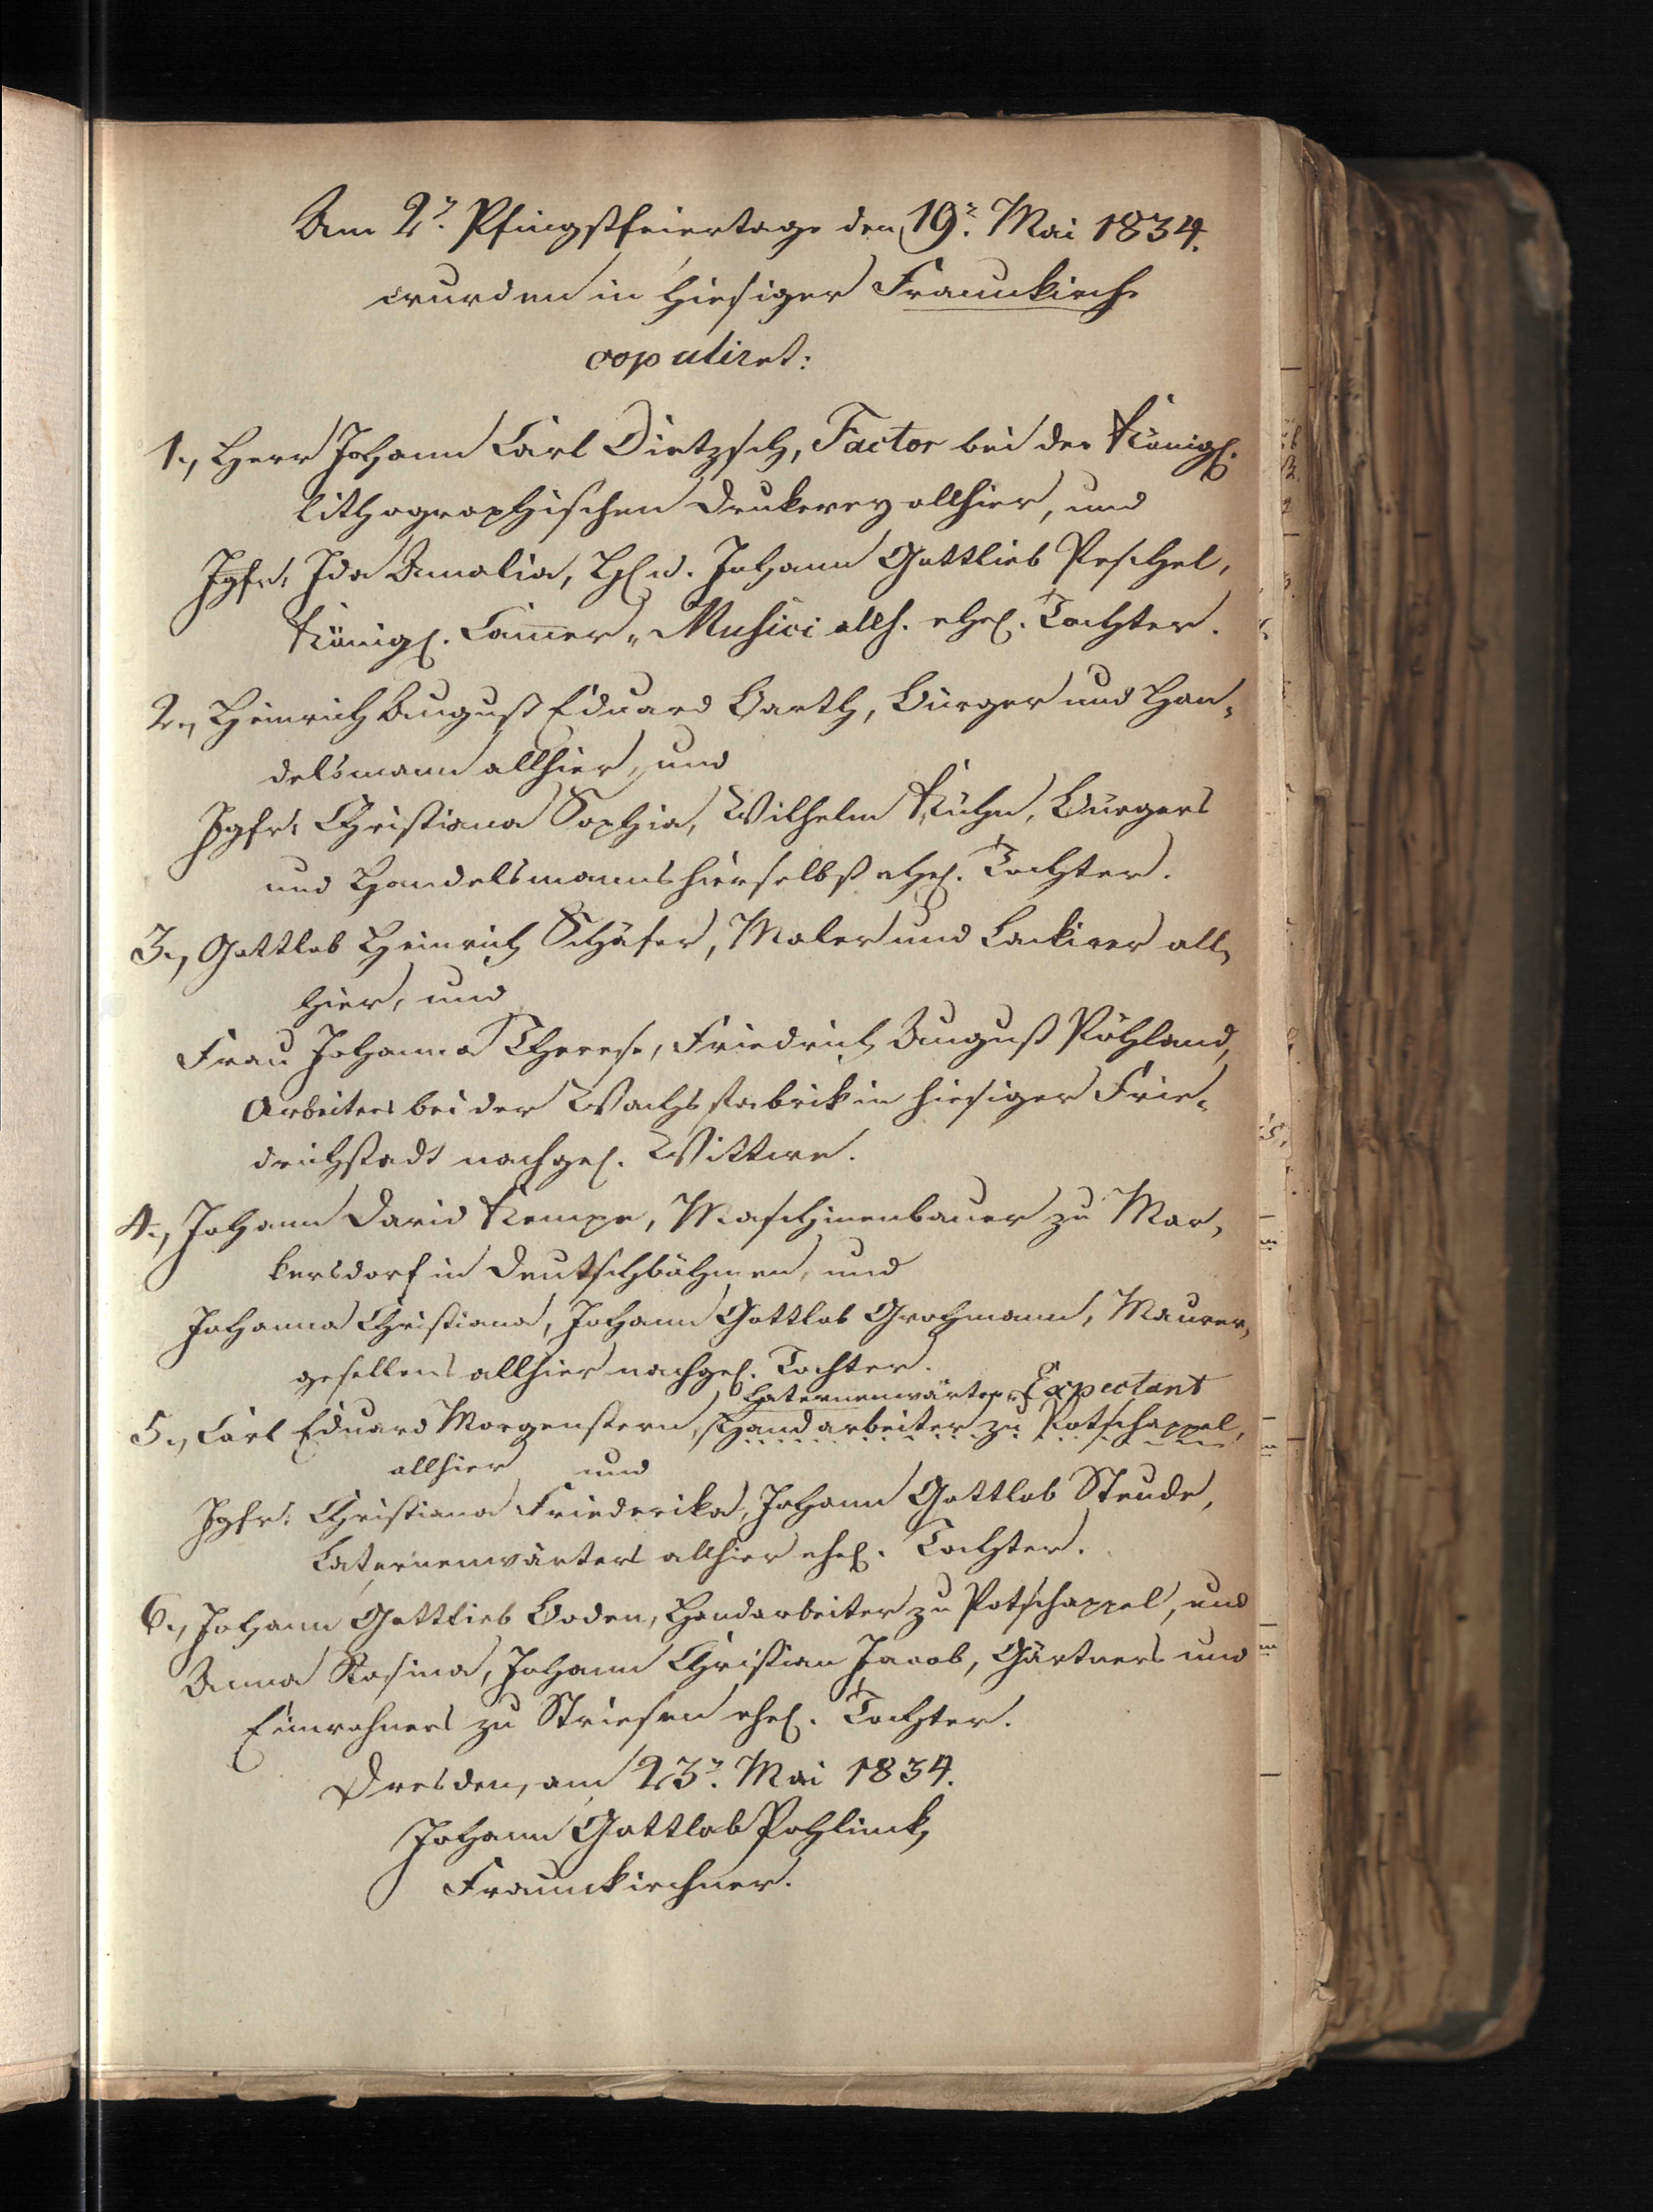 Am 2n. Pfingstfeiertage den 19n. Mai 1834.
wurden in hiesiger Frauenkirche
copuliret:
1., Herr Johann Carl Dietzsch, Factor bei der Königl.
lithographischen Drukerey allhier, und
Jgfr. Ida Amalia, Hrn. Johann Gottlieb Peschel,
Königl. Cammer-Musici allh. ehel. Tochter.
2., Heinrich August Eduard Barth, Bürger und Han-
delsmann allhier, und
Jgfr. Christiana Sophia, Wilhelm Kühn, Bürgers
und Handelsmanns hierselbst ehel. Tochter.
3., Gottlob Heinrich Schäfer, Maler und Lackirer all-
hier, und
Frau Johanna Therese, Friedrich August Pöhland,
Arbeiters bei der Wachsfabrik in hiesiger Frie-
drichstadt nachgel. Wittwe.
4., Johann David Kempe, Maschinenbauer zu Mar-
kersdorf in Deutschböhmen, und
Johanna Christiana, Johann Gottlob Grohmann, Maurer-
gesellens allhier nachgel. Tochter.
Laternenwärter-Expectant
5., Carl Eduard Morgenstern, Handarbeiter zu Potschappel,
allhier und
Jgfr. Christiana Friederika, Johann Gottlob Steude,
Laternenwärters allhier ehel. Tochter.
6., Johann Gottlieb Boden, Handarbeiter zu Potschappel, und
Anna Rosina, Johann Christian Jacob, Gärtners und
Einwohners zu Striesen ehel. Tochter.
Dresden, am 23n. Mai 1834.
Johann Gottlob Pohlinck,
Frauenkirchner.